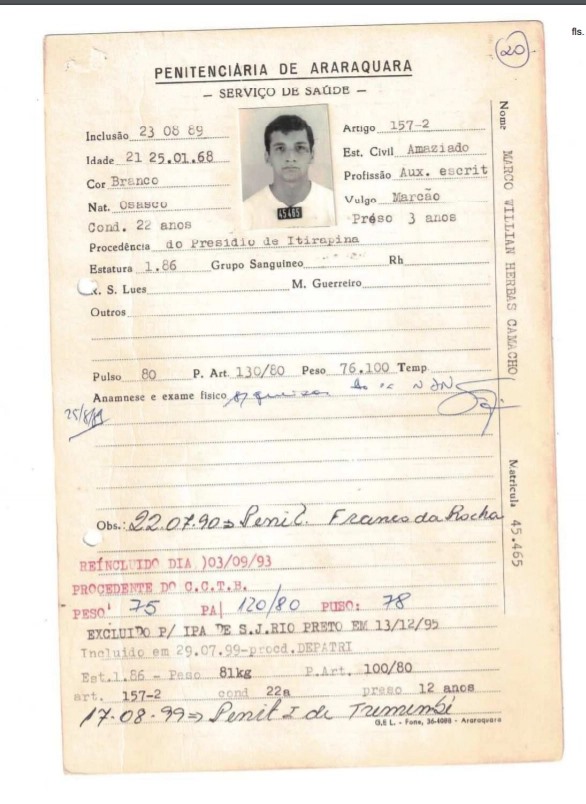 fls.
20
PENITENCIÁRIA DE ARARAQUARA
— SERVIÇO DE SAÚDE —
Inclusão 23 08 89
Artigo 157-2
Idade 21 25.01.68
Est. Civil Amaziado
Cor Branco
Profissão Aux. escrit
Nat. Osasco
Vulgo Marcão
45465
Cond. 22 anos
Prêso 3 anos
Procedência do Presidio de Itirapina
Estatura 1.86 Grupo Sanguineo Rh
R. S. Lues M. Guerreiro
Outros
Pulso 80 P. Art. 130/80 Peso 76.100 Temp
Anamnese e exame físico
25/8/89
Obs.: 22.07.90 => Penit. Franco da Rocha
REÍNCLUIDO DIA )03/09/93
PROCEDENTE DO C.C.T.B.
PESO' 75 PA| 120/80 PUSO: 78
EXCLUIDO P/ IPA DE S.J.RIO PRETO EM 13/12/95
Incluido em 29.07.99-procd.DEPATRI
Est.1.86 - Peso 81kg P.Art. 100/80
art. 157-2 cond 22a preso 12 anos
17.08.99 => Penit I de Tremembé
G.E L. - Fone, 36-4088 - Araraquara
Nome MARCO WILLIAN HERBAS CAMACHO
Matrícula 45.465